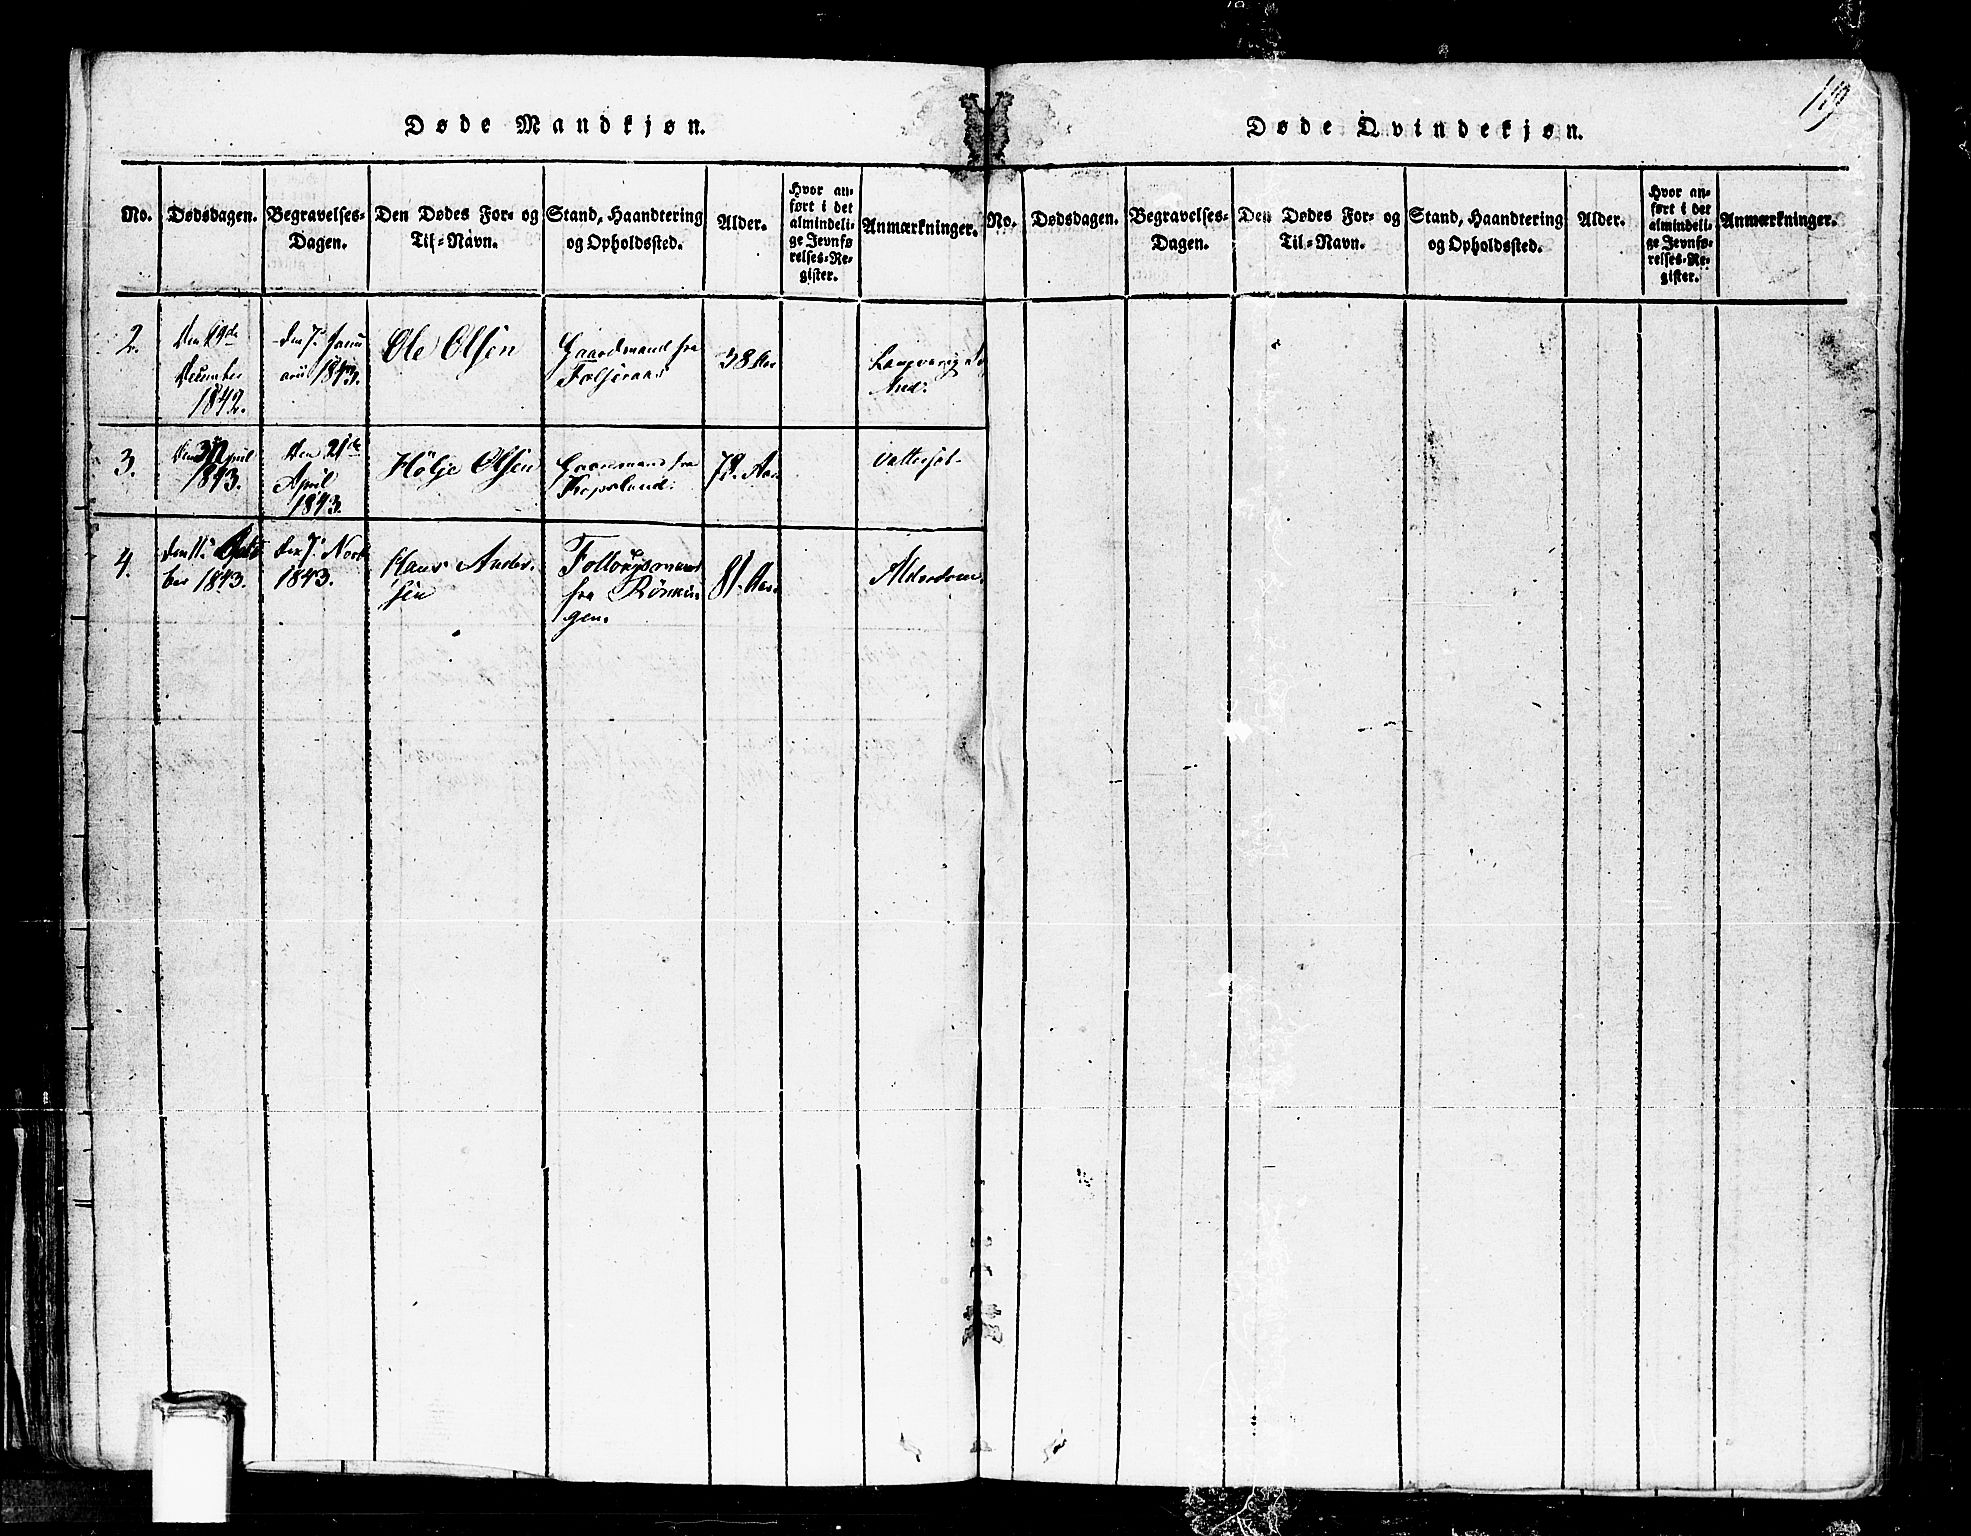 Døde Mandkjøn.
No.
Dødsdagen.
Begravelses-
Dagen.
Den Dødes For- og
Til-Navn.
Stand, Haandtering
og Opholdssted.
Alder.
Hvor an-
ført i det
almindeli-
ge Jevnfø-
relses-Re-
gister.
Anmærkninger.
2.
Den 29de
December
1842.
den 7. Janu
arii 1843.
Ole Olsen
Gaardmand fra
38 Aar
3.
April
1843.
Den 21de
April
1843.
Hølje Olsen
Gaardmand fra
78. Aar
Vattersot.
4.
den 11.
ber 1843.
den 7. Novb
1843.
Hans Ander-
sen
Follougsmand
fra Rønnin
gen.
81. Aar
Alderdom.
Døde Qvindekjøn.
No.
Dødsdagen.
Begravelses-
Dagen.
Den Dødes For- og
Til-Navn.
Stand, Haandtering
og Opholdssted.
Alder.
Hvor an-
ført i det
almindeli-
ge Jevnfø-
relses-Re-
gister.
Anmærkninger.